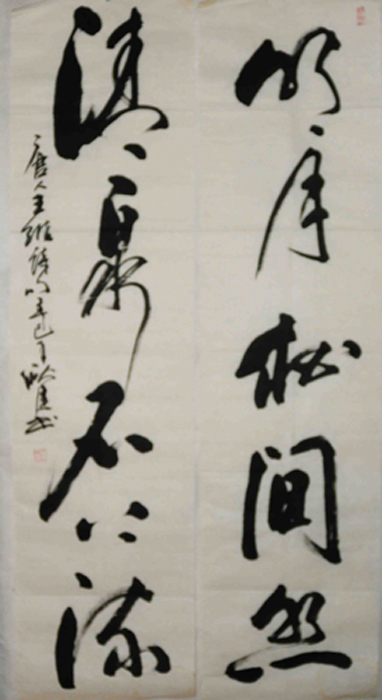 明月松间照
清泉石上流
唐人王维诗句辛巳 书